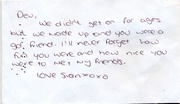 Dev,
We didn't get on for ages
but we made up and you were a
good friend. I'll never forget how
fun you were and how nice you
were to me + my friends.
love Sian xoxo